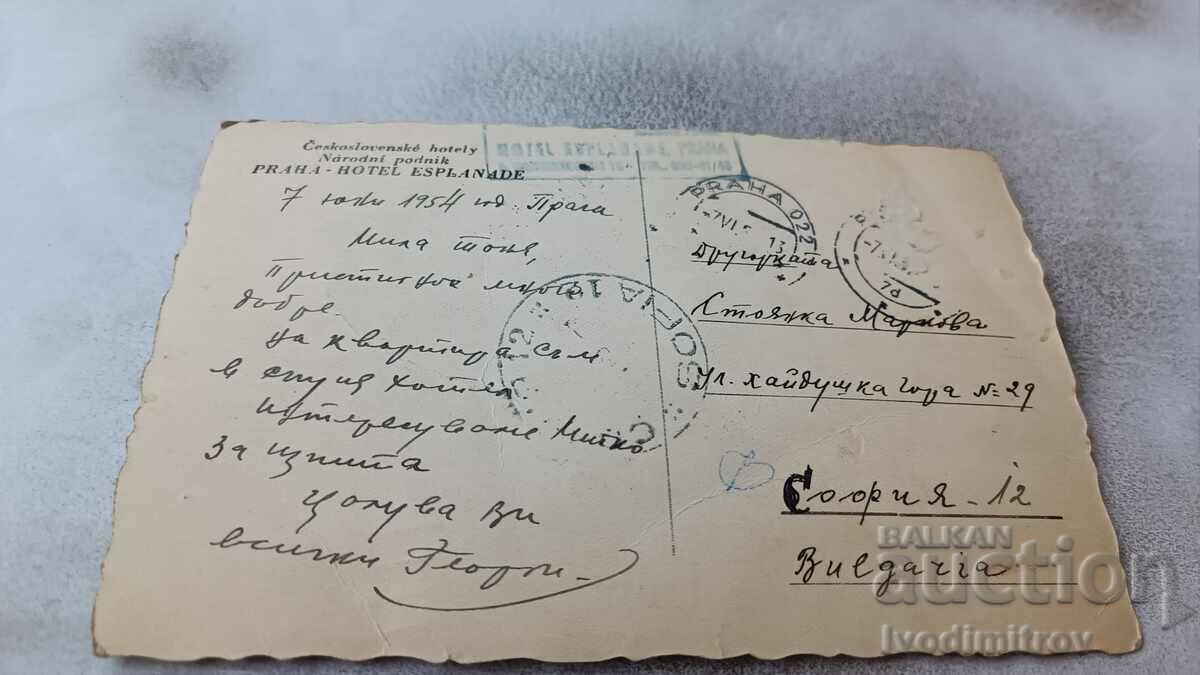 Československé hotely
Národní podnik
PRAHA - HOTEL ESPLANADE
HOTEL ESPLANADE PRAHA
7 юни 1954 год. Прага
Мила Тоня,
Пристигнах много
добре.
На квартира съм
в същия хотел
Митко
за изпита
Целува Ви
всички Георги
PRAHA 022
-7.VI.
13
SOFIA
12
Другарката
Стоянка Маркова
ул. Хайдушка гора № 29
София - 12
BALKAN
auction
Ivodimitrov